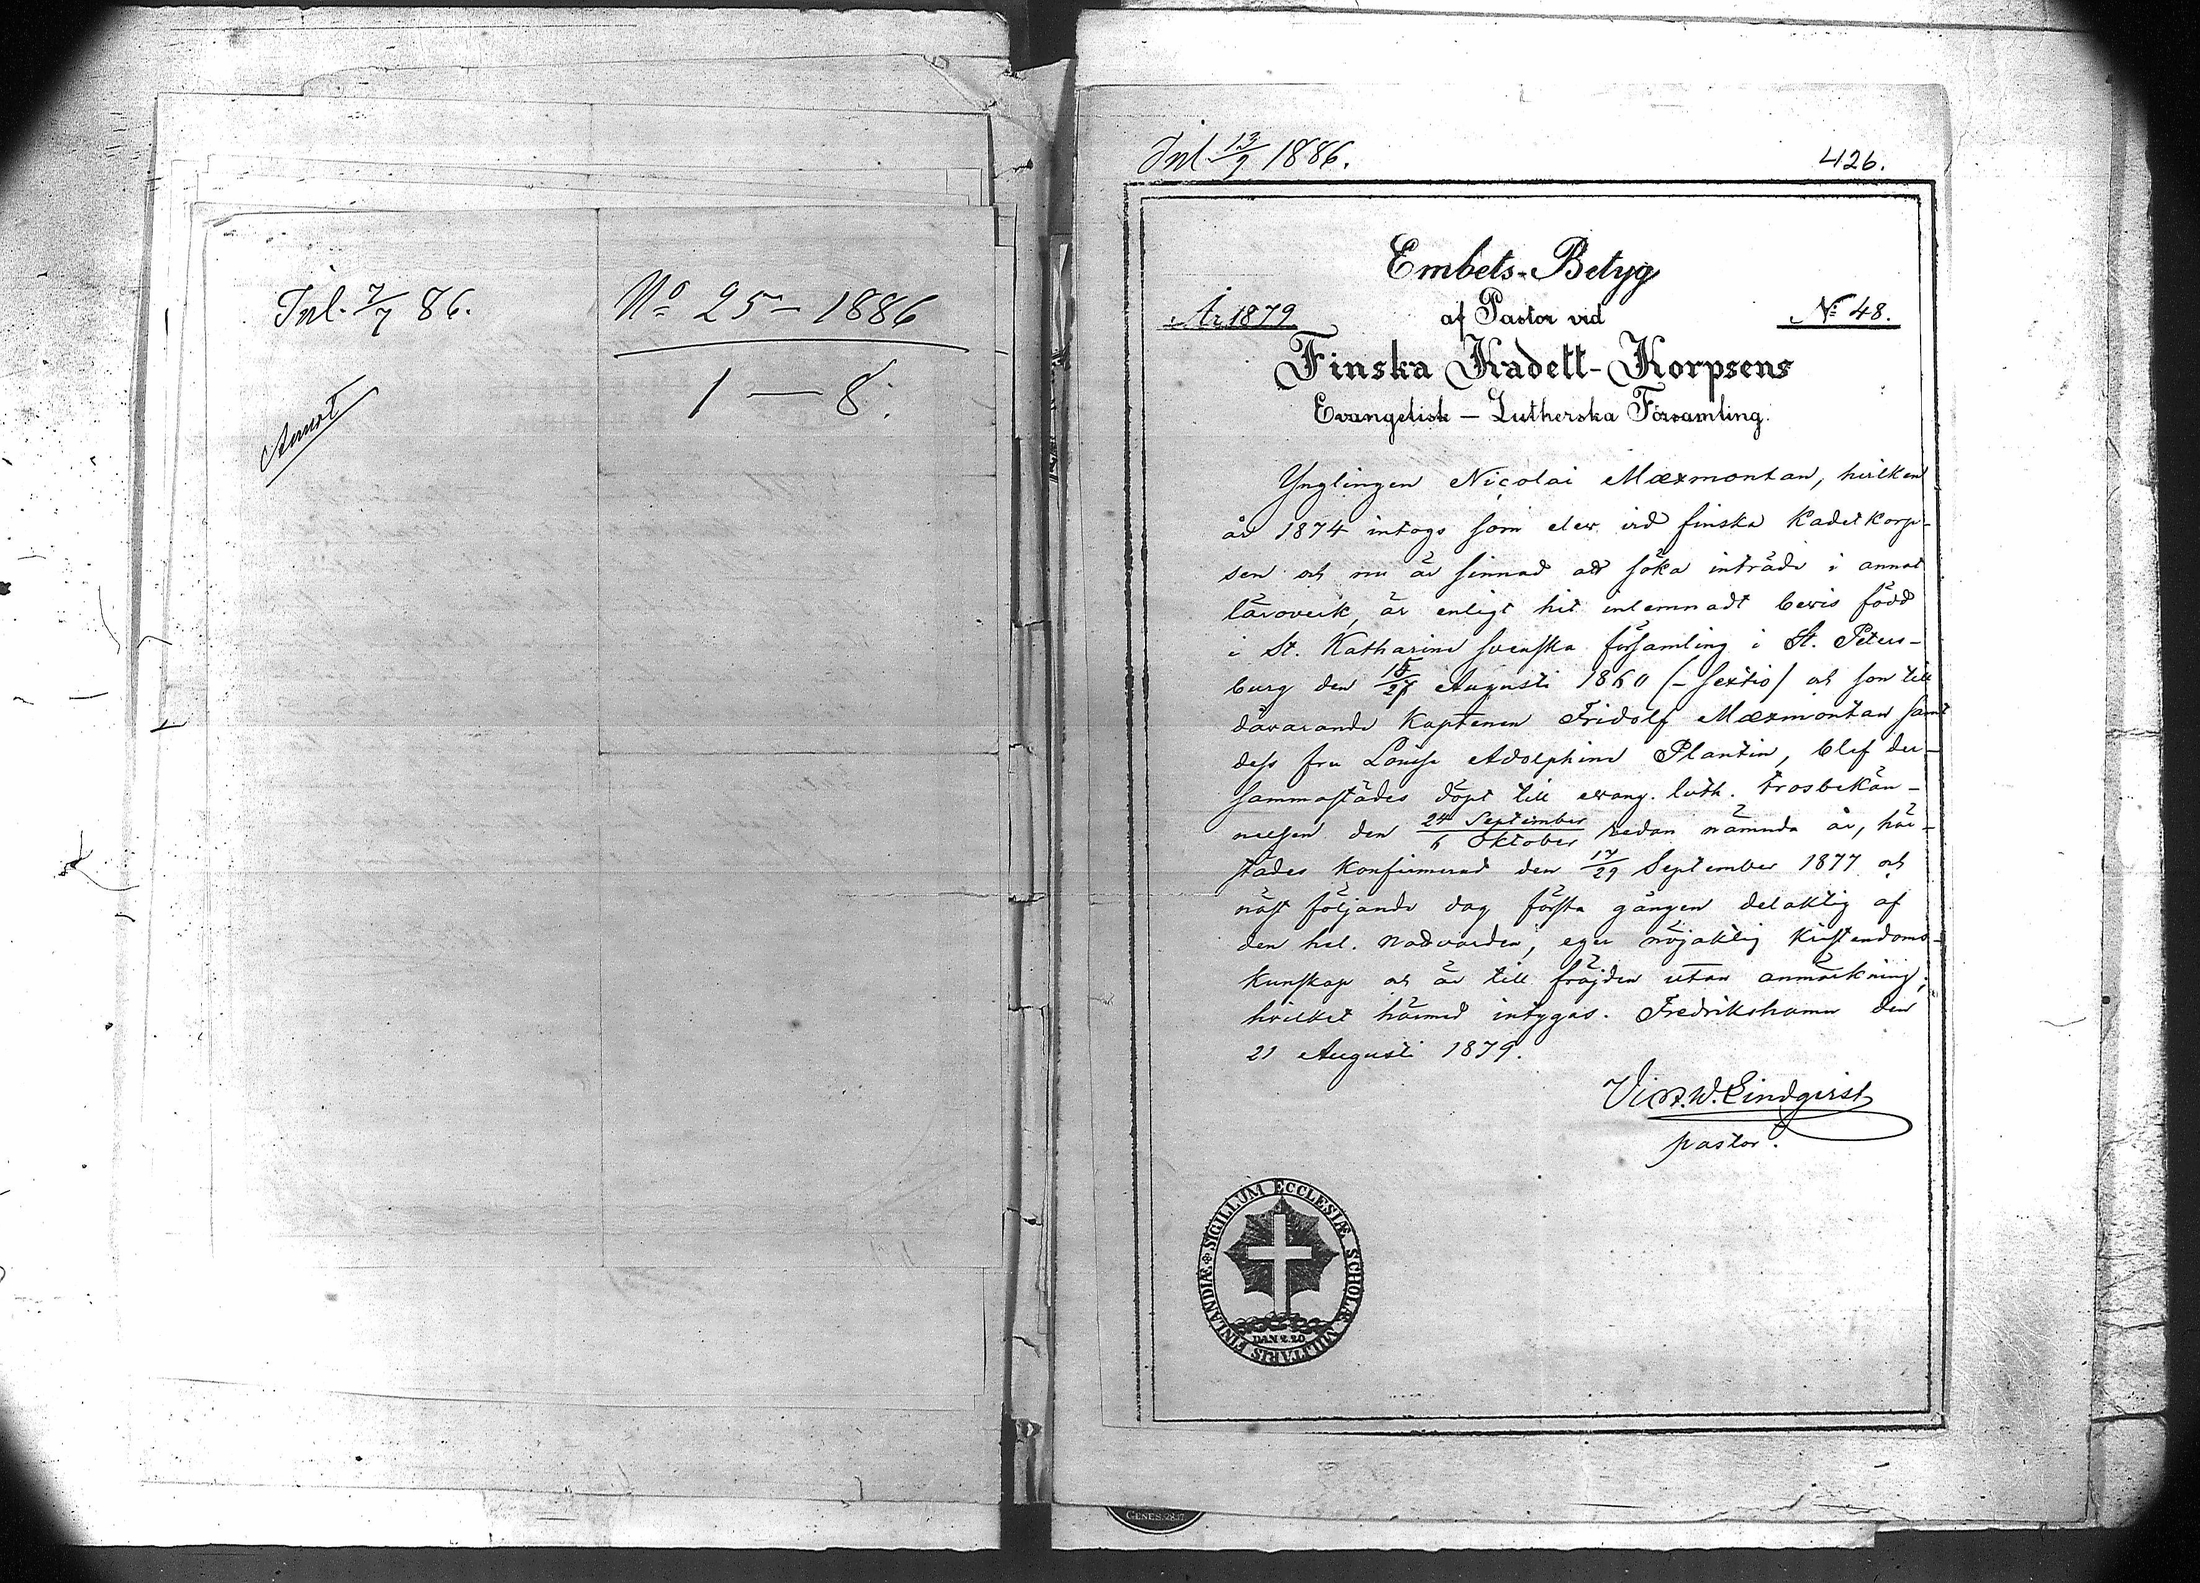 Inl. 7/7 86.
No 25 - 1886
1 - 8.
Inl 13/9 1886.
426.
Embets-Betyg
År 1879
af Pastor vid
No 48.
Finska Kadett-Korpsens
Evangelisk - Lutherska Församling.
Ynglingen Nicolai Mæxmontan, hvilken
år 1874 intogs som elev vid finska Kadetkorp-
sen och nu är sinnad att söka inträde i annat
läroverk, är enligt hit inlemnadt bevis född
i St. Katharine svenska församling i St. Peters-
burg den 15/27 Augusti 1860 (- sextio) och son till
dåvarande Kaptenen Fridolf Mæxmontan samt
dess fru Louise Adolphine Plantin, blef der-
sammastädes döpt till evang. luth. trosbekän-
nelsen den 24 September/6 Oktober sedan nämnda år, här-
städes konfirmerad den 17/29 September 1877 och
näst följande dag första gången delaktig af
den hel. nadvarden, eger nöjaktig kristendoms-
kunskap och är till fräjden utan anmärkning;
hvilket härmed intygas. Fredrikshamn den
21 Augusti 1879.
Vict. W. Lindqvist
pastor.
SIGILLUM ECCLESIÆ SCHOLÆ MILITARIS FINLANDIÆ
DAN 2.20
GENES. 28.17